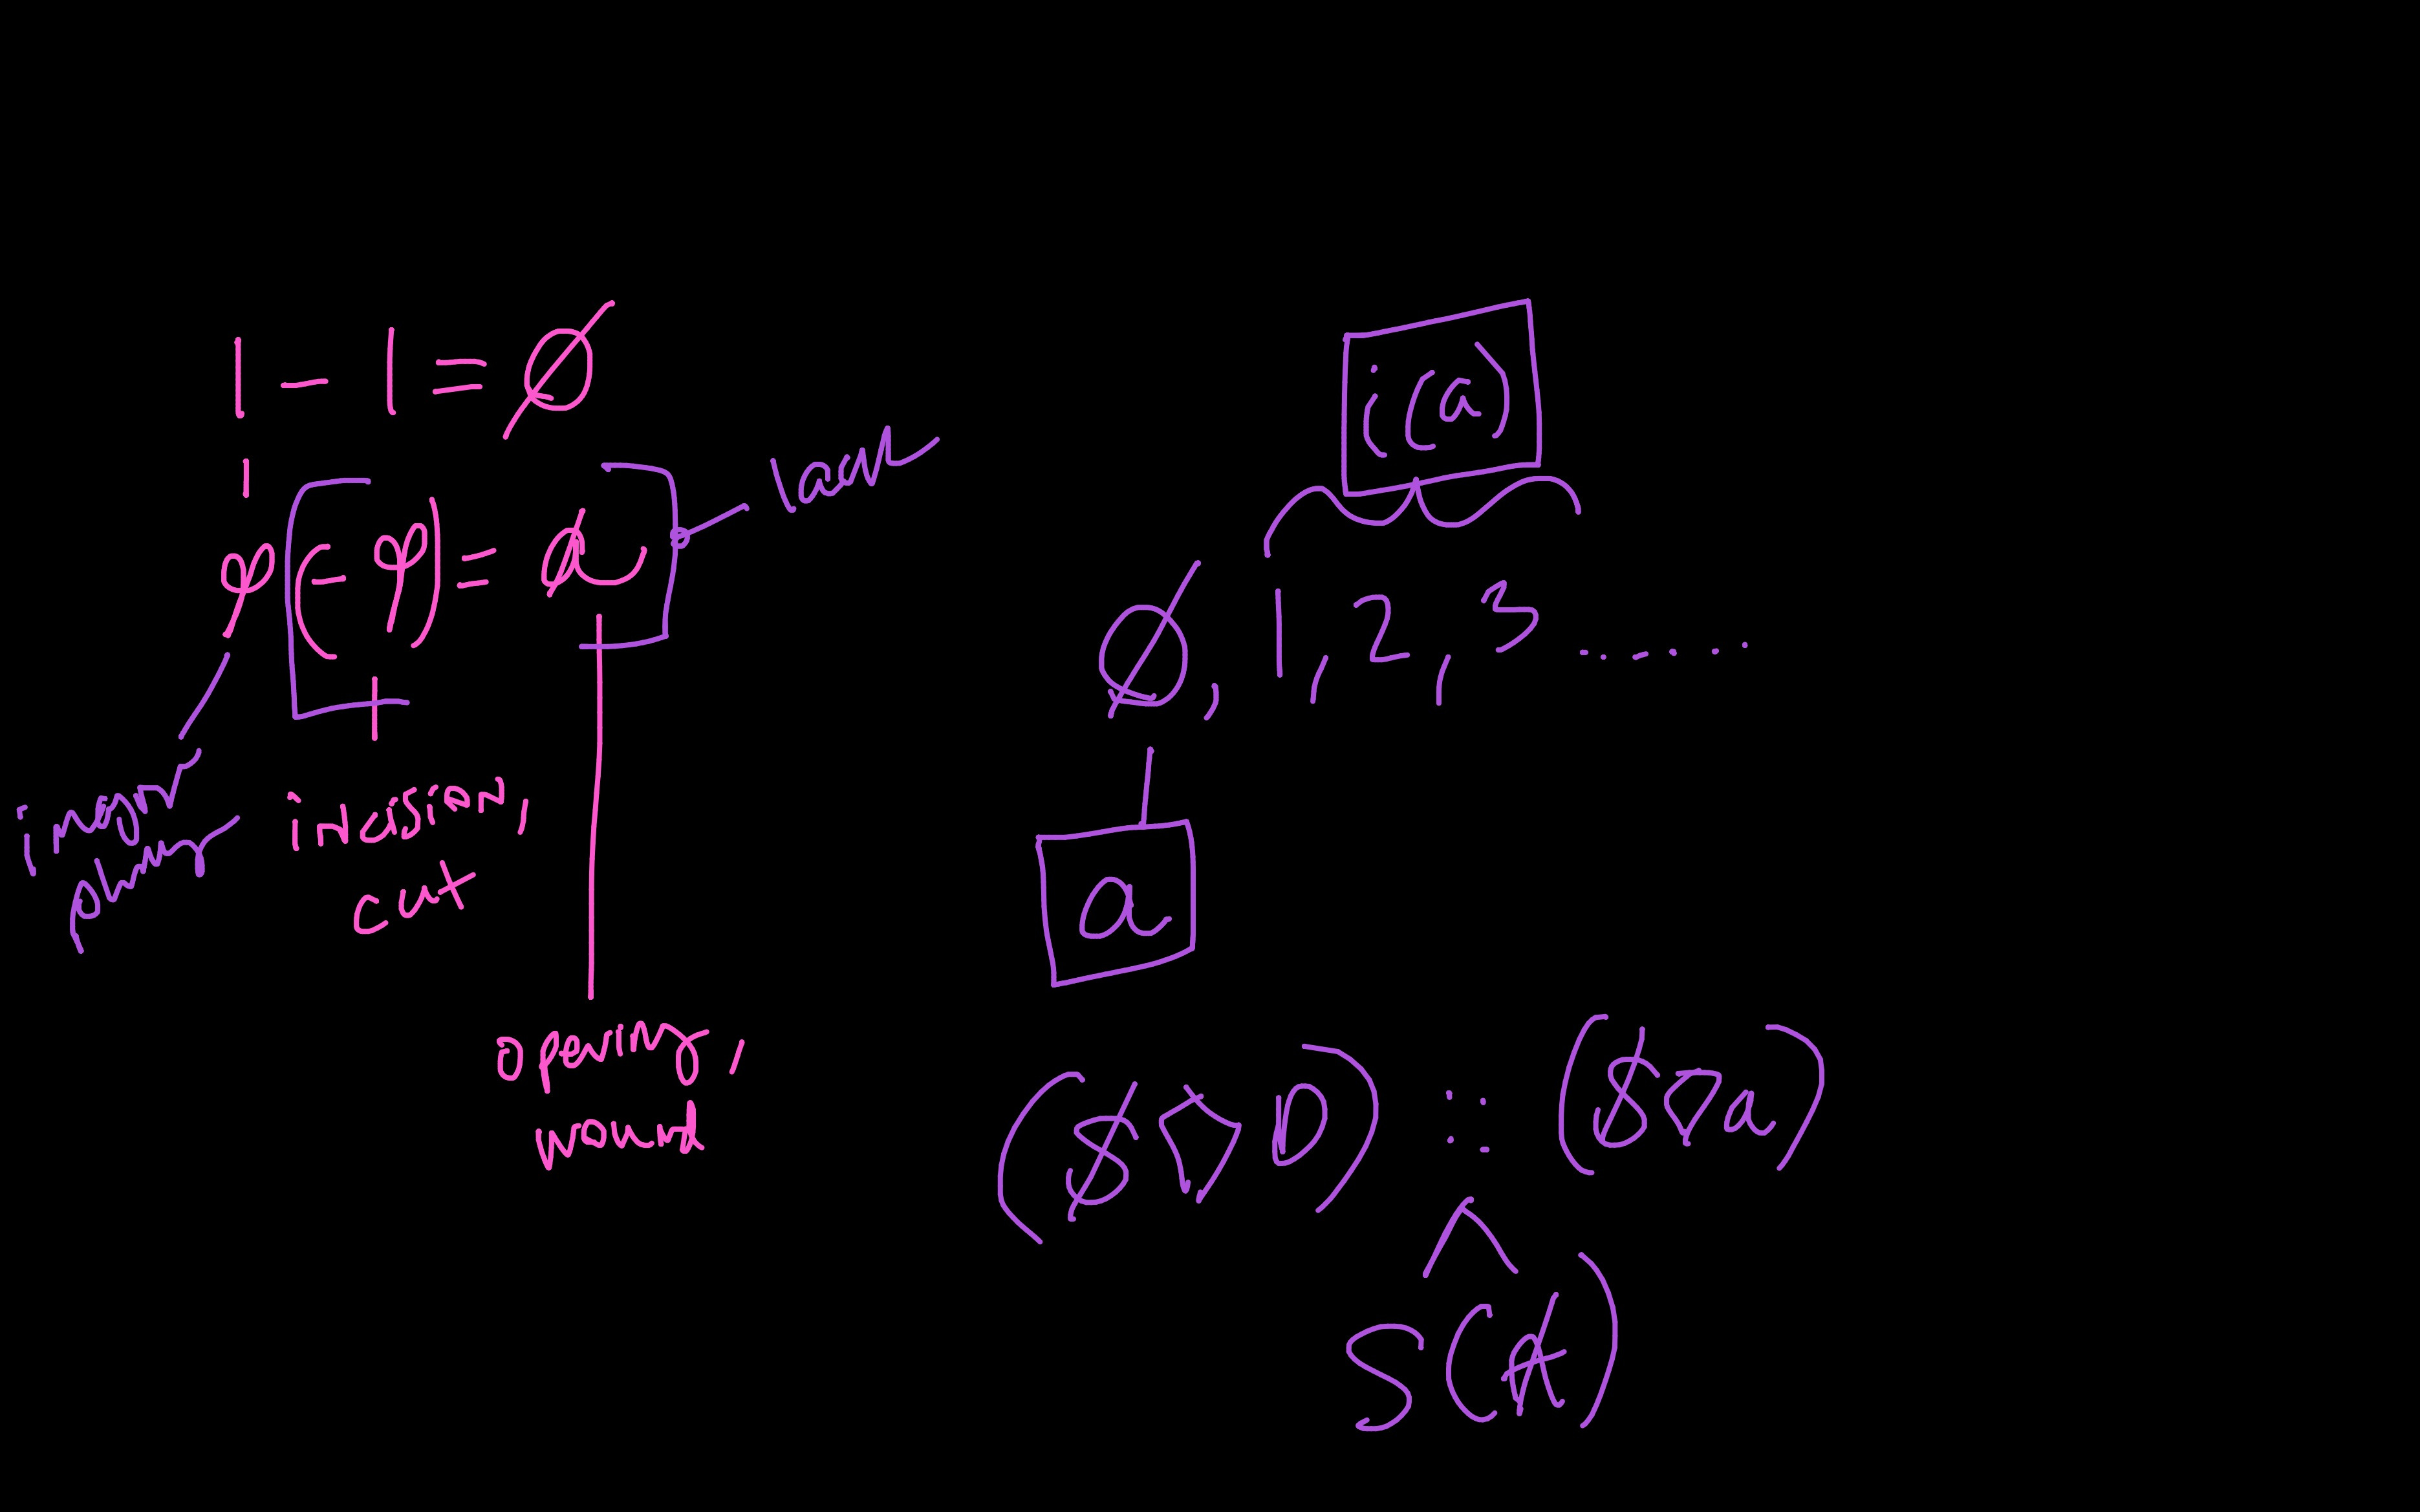 1 - 1 = Ø
φ [(-φ) = a̸]
lack
imag
phallus
incision,
cut
opening,
wound
i(a)
Ø, 1, 2, 3 .......
a
($ ◇ D) :: ($ ◇ a)
^
S(Ⱥ)